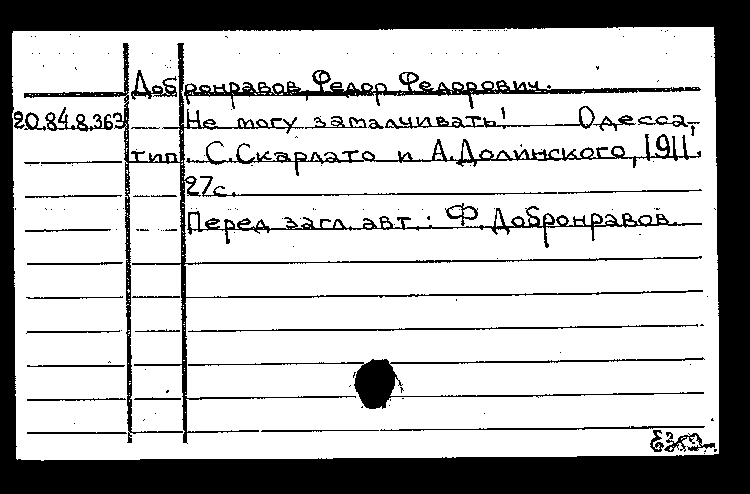 Добронравов, Федор Федорович.
20.84.8.363 Не могу замалчивать! Одесса,
тип. С. Скарлато и А. Долинского, 1911.
27с.
Перед загл. авт.: Ф. Добронравов.